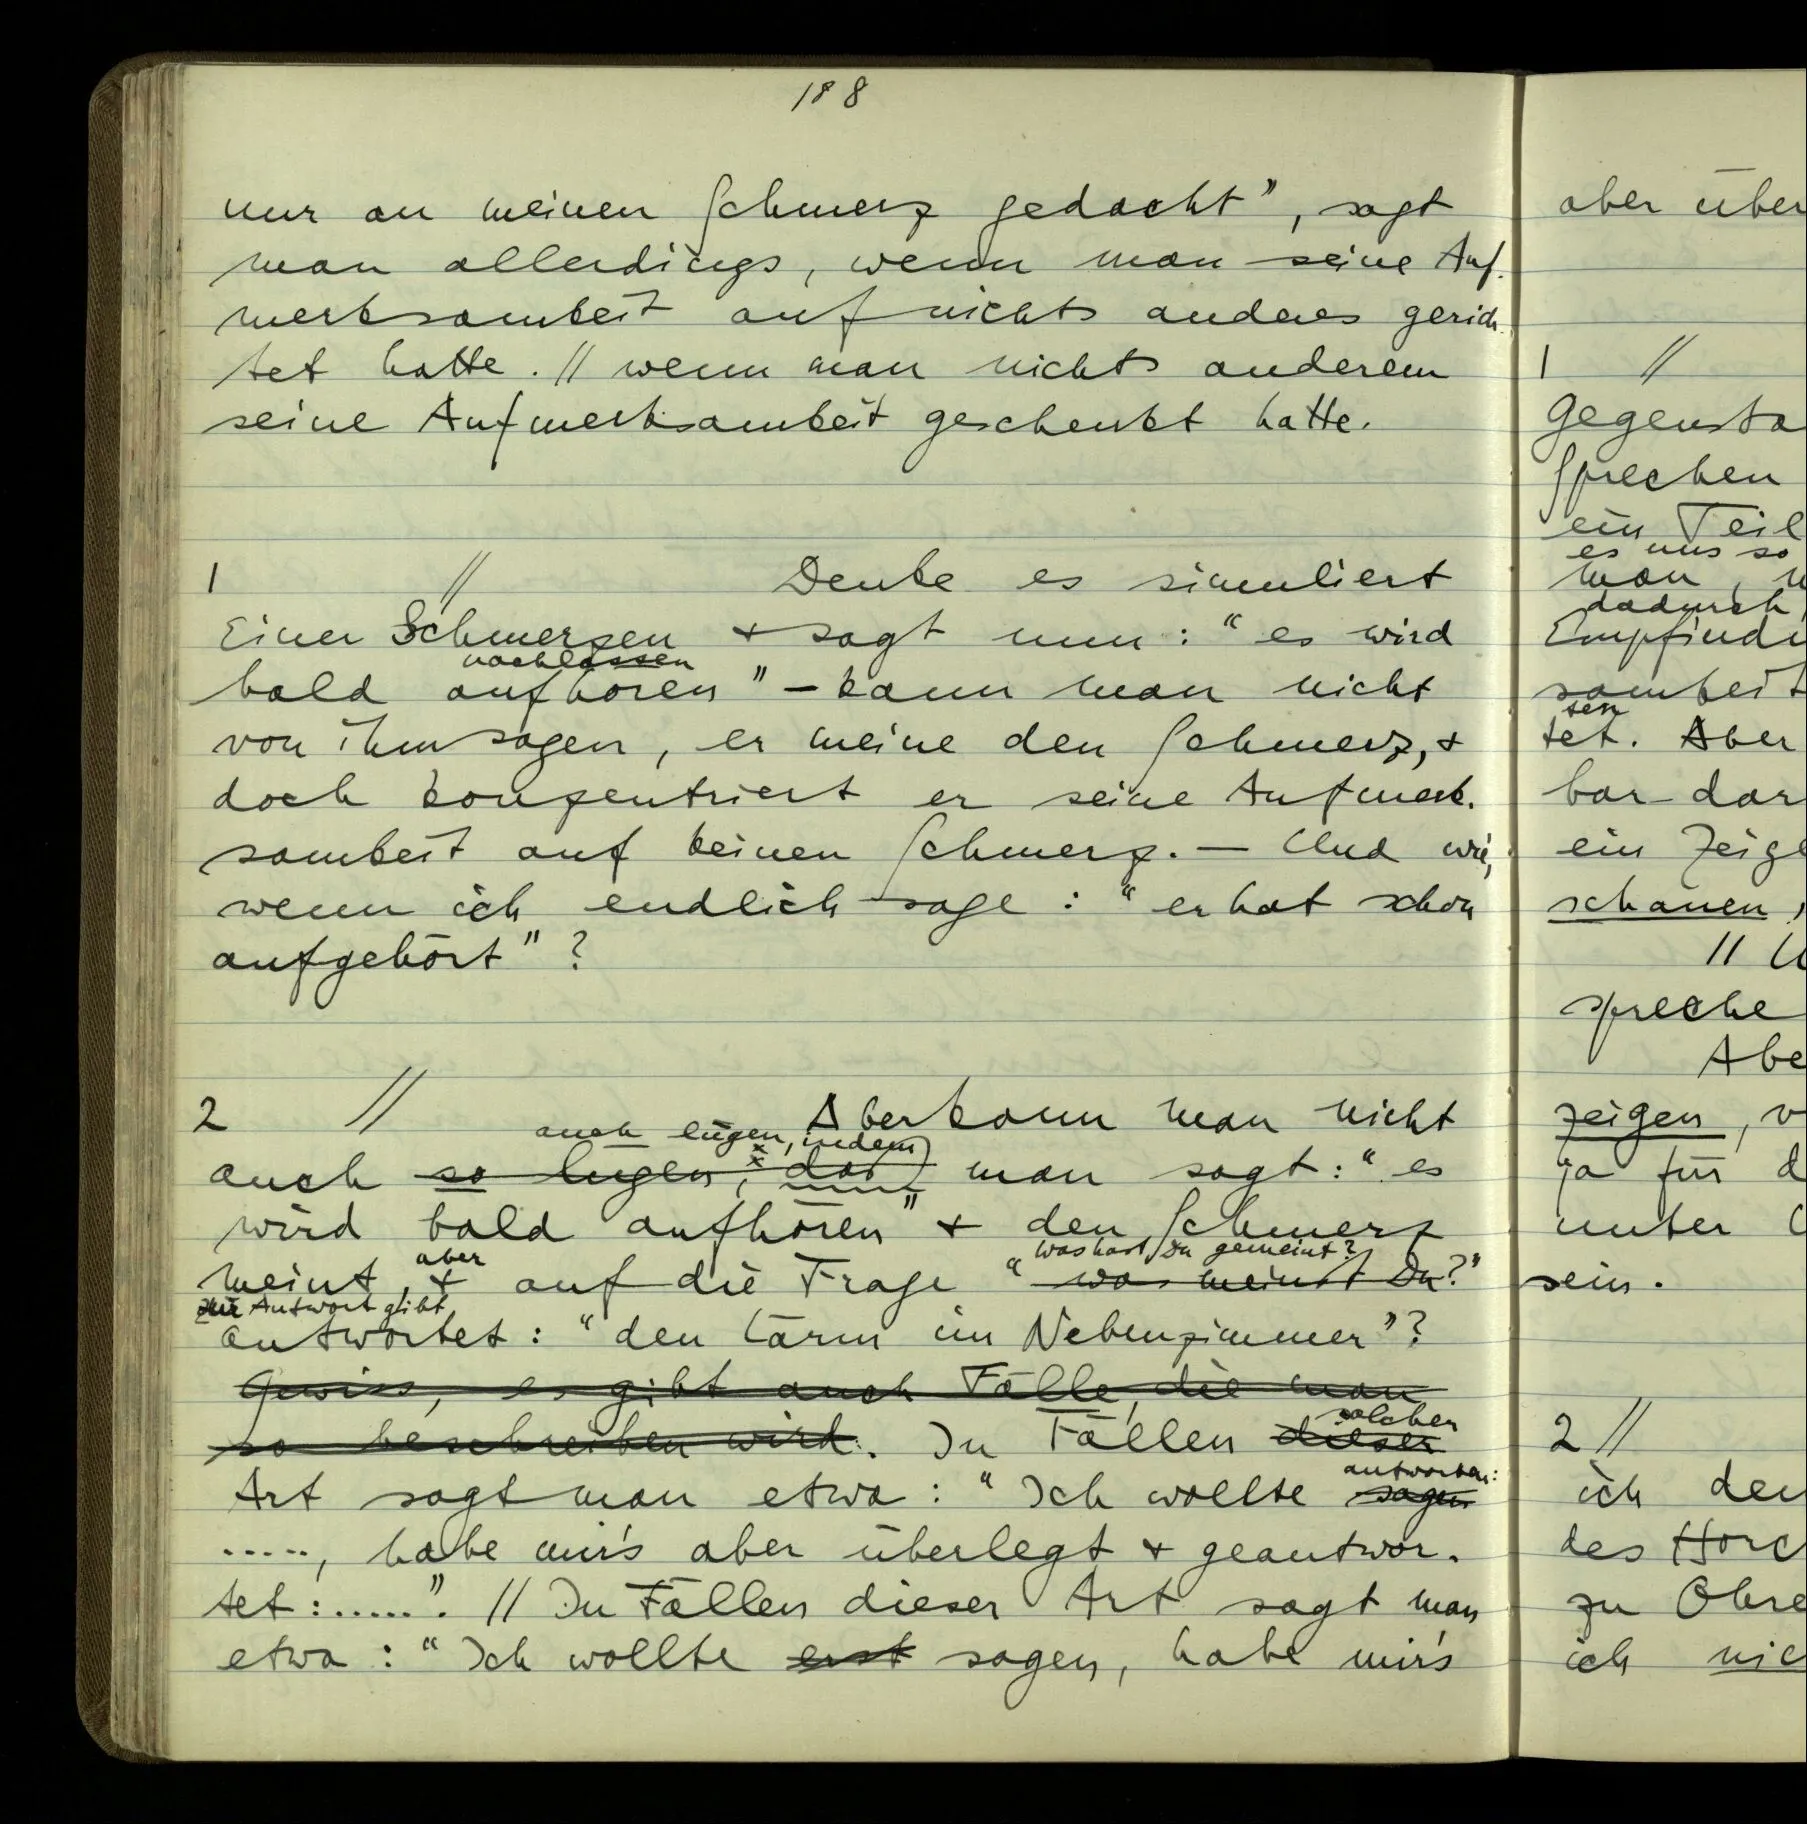 188
nur an meinen Schmerz gedacht", sagt
man allerdings, wenn man seine Auf-
merksamkeit auf nichts anderes gerich-
tet hatte. // wenn man nichts anderem
seine Aufmerksamkeit geschenkt hatte.
1 // Denke es simuliert
Einer Schmerzen & sagt nun: "es wird
nachlassen
bald aufhören" – kann man nicht
von ihm sagen, er meine den Schmerz, &
doch konzentriert er seine Aufmerk-
samkeit auf keinen Schmerz. — Und wie,
wenn ich endlich sage: "er hat schon
aufgehört"?
2 // Aber kann man nicht
auch lügen, indem
auch so lügen, daß man sagt: "es
wird bald aufhören" & den Schmerz
aber was hast Du gemeint?
meint, & auf die Frage "was meinst Du?"
zur Antwort gibt
antwortet: "den Lärm im Nebenzimmer"?
Gewiss, es gibt auch Fälle, die man
so beschreiben wird. In Fällen dieser
solchen
Art sagt man etwa: "Ich wollte sagen
antworten:
....., habe mir's aber überlegt & geantwor-
tet: .....". // In Fällen dieser Art sagt man
etwa: "Ich wollte erst sagen, habe mir's
aber über
1 //
Gegensta
Sprechen
ein Teil
es uns so
man,
dadurch,
Empfindu
samkeit
ten
tet. Aber
bar dar
ein Zeige
schauen,
// U
spreche
Abe
zeigen, v
ja für d
unter
sein.
2 //
ich den
des Horc
zu Ohre
ich nic